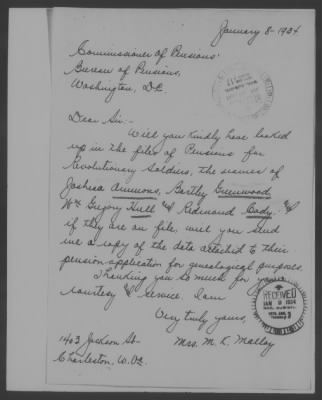 January 8 - 1934
Commissioner of Pensions
Bureau of Pensions,
Washington, D.C.
Dear Sir:-
Will you kindly have looked
up in the files of Pensions for
Revolutionary Soldiers, the names of
Joshua Ammons, Bartley Greenwood
Wm Gregory Hull and Redmond Cody and
if they are on file, will you send
me a copy of the data attached to their
pension application for genealogical purposes.
Thanking you so much for your
courtesy and service. I am
Very truly yours,
1403 Jackson St. Mrs. M. K. Malloy
Charleston, W. Va.
RECEIVED
JAN 9 1934